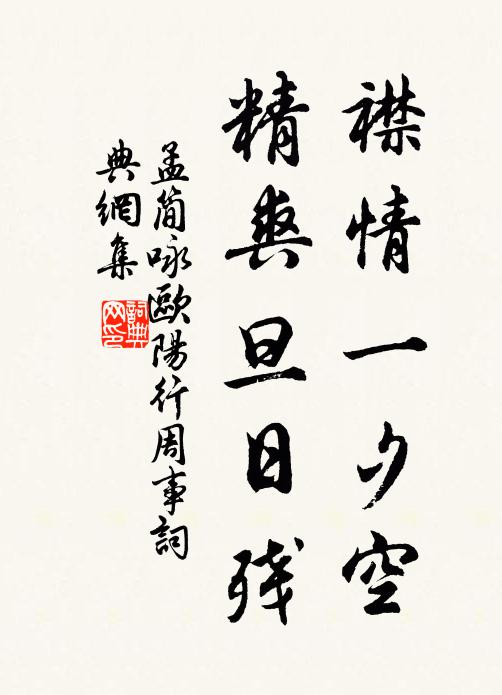 襟情一夕空
精爽旦日残
孟简咏歐陽行周事詞
典網集
詞典网印